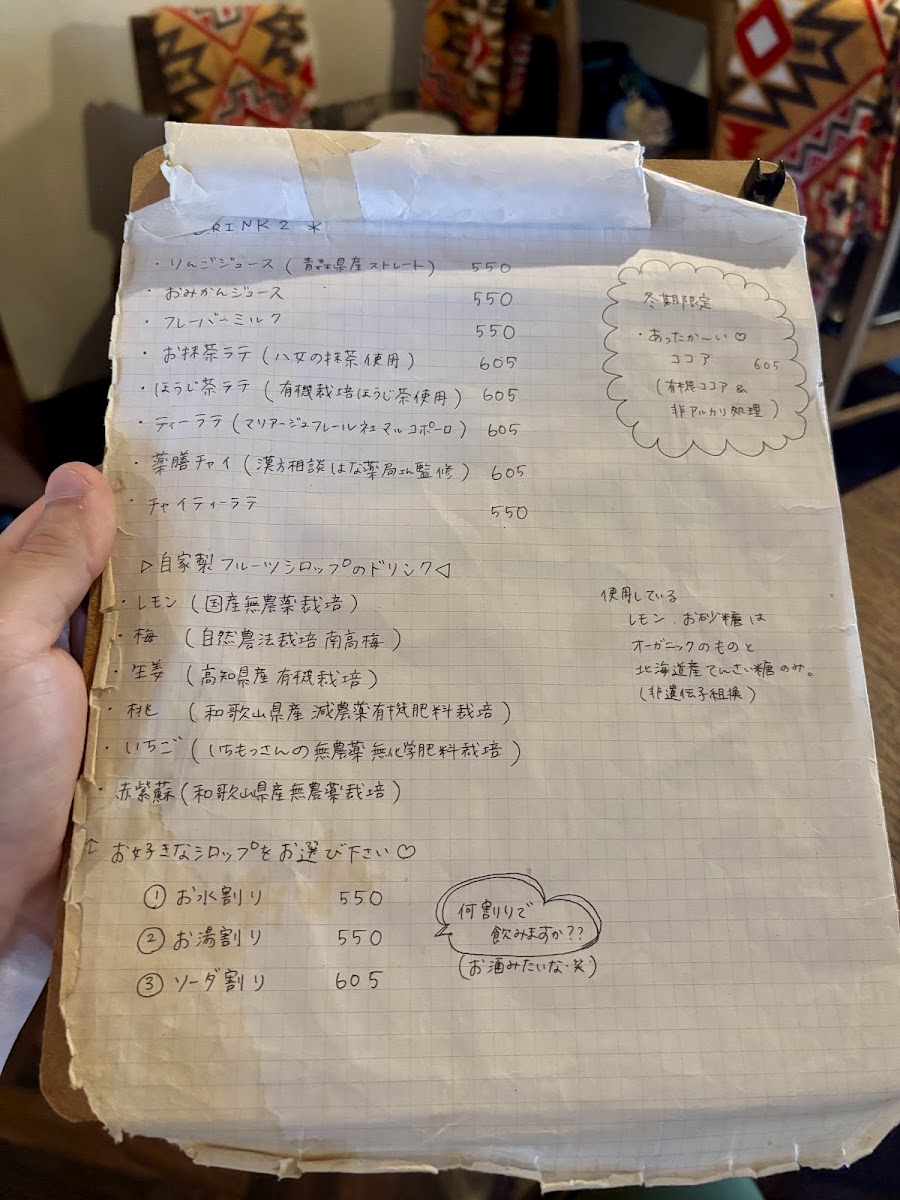 DRINK 2 *
・りんごジュース (青森県産ストレート) 550
・おみかんジュース 550
・フレーバーミルク 550
・お抹茶ラテ (八女の抹茶使用) 605
・ほうじ茶ラテ (有機栽培ほうじ茶使用) 605
・ティーラテ (マリアージュフレール社マルコポーロ) 605
・薬膳チャイ (漢方相談はな薬局さん監修) 605
・チャイティーラテ 550
冬期限定
・あったか〜い♡
ココア 605
(有機ココア &
非アルカリ処理)
▷自家製フルーツシロップのドリンク◁
・レモン (国産無農薬栽培)
・梅 (自然農法栽培 南高梅)
・生姜 (高知県産有機栽培)
・桃 (和歌山県産 減農薬有機肥料栽培)
・いちご (いちもっさんの無農薬 無化学肥料栽培)
・赤紫蘇 (和歌山県産無農薬栽培)
使用している
レモン、お砂糖は
オーガニックのものと
北海道産てんさい糖のみ。
(非遺伝子組換)
↑お好きなシロップをお選び下さい♡
① お水割り 550
② お湯割り 550
③ ソーダ割り 605
何割りで
飲みますか??
(お酒みたいな・笑)